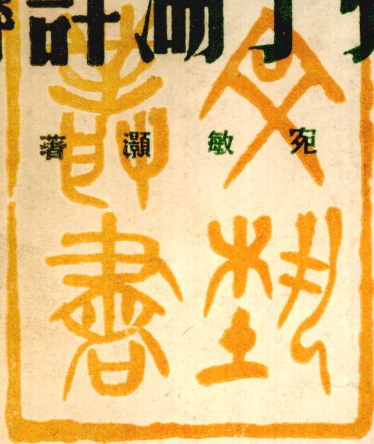 宛敏灝著
文藝
叢書